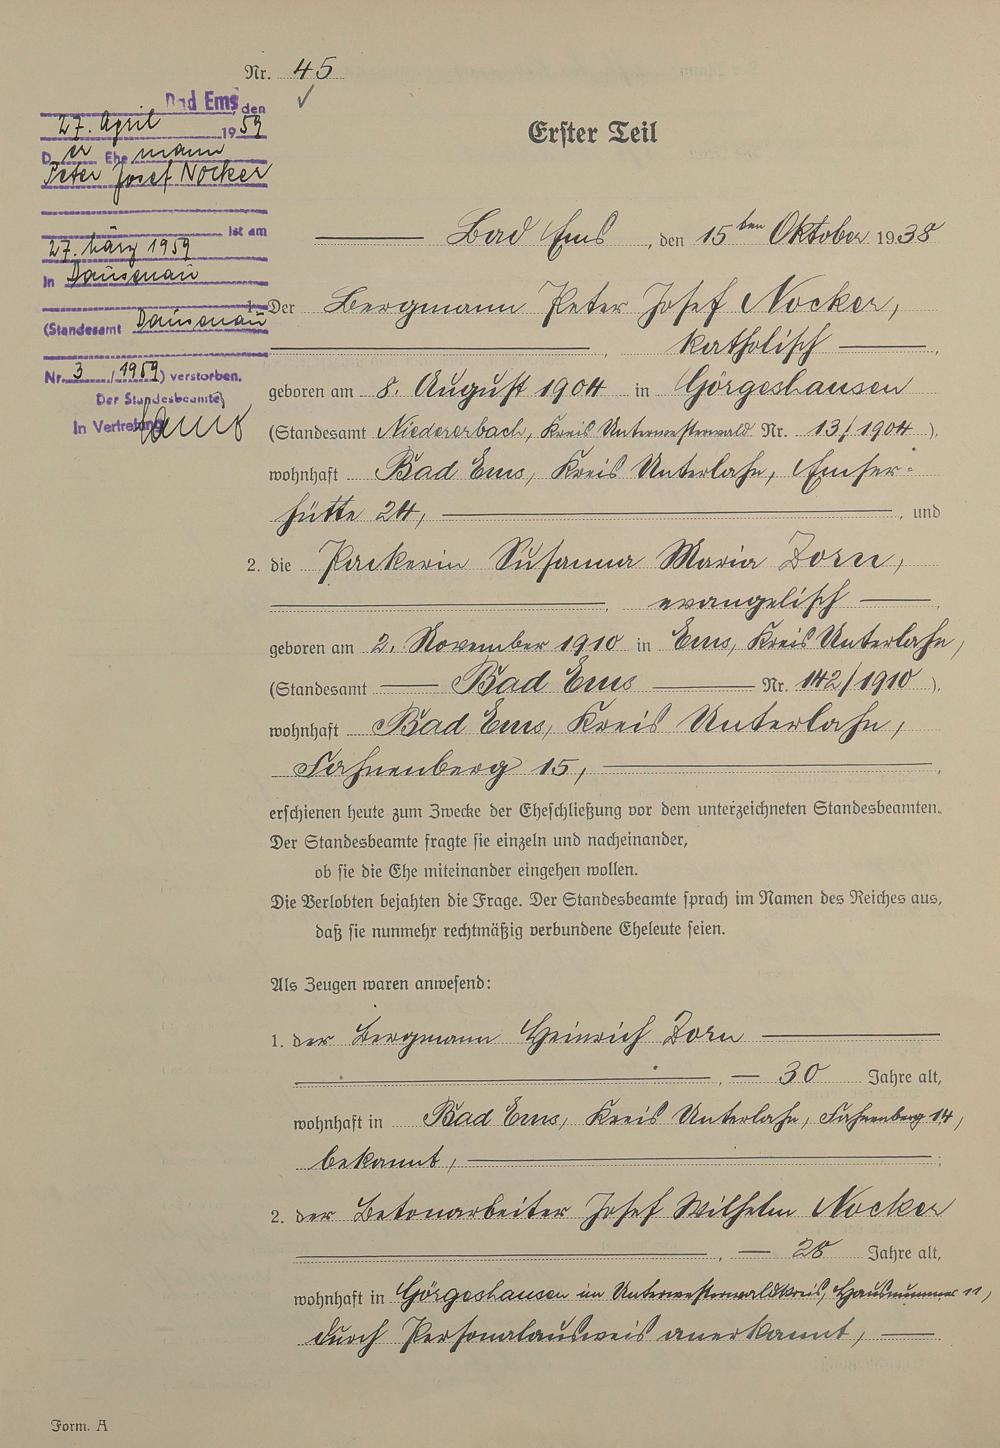 Nr. 45
Bad Ems, den
27. April 1959
Der Ehemann
Peter Josef Nocker
ist am
27. März 1959
in Dausenau
(Standesamt Dausenau
Nr. 3 / 1959) verstorben.
Der Standesbeamte
In Vertretung
Erster Teil
Bad Ems, den 15ten Oktober 1938
1. Der Bergmann Peter Josef Nocker,
, katholisch,
geboren am 8. August 1904 in Görgeshausen
(Standesamt Niedererbach, Kreis Unterwesterwald Nr. 13/1904),
wohnhaft Bad Ems, Kreis Unterlahn, Emser-
hütte 24, , und
2. die Packerin Susanna Maria Zorn,
, evangelisch,
geboren am 2. November 1910 in Ems, Kreis Unterlahn,
(Standesamt Bad Ems Nr. 142/1910),
wohnhaft Bad Ems, Kreis Unterlahn,
Fahnenberg 15, ,
erschienen heute zum Zwecke der Eheschließung vor dem unterzeichneten Standesbeamten.
Der Standesbeamte fragte sie einzeln und nacheinander,
ob sie die Ehe miteinander eingehen wollen.
Die Verlobten bejahten die Frage. Der Standesbeamte sprach im Namen des Reiches aus,
daß sie nunmehr rechtmäßig verbundene Eheleute seien.
Als Zeugen waren anwesend:
1. der Bergmann Heinrich Zorn
, 30 Jahre alt,
wohnhaft in Bad Ems, Kreis Unterlahn, Fahnenberg 14,
bekannt, ;
2. der Betonarbeiter Josef Wilhelm Nocker
, 28 Jahre alt,
wohnhaft in Görgeshausen im Unterwesterwaldkreis, Hausnummer 11,
durch Personalausweis anerkannt, .
Form. A